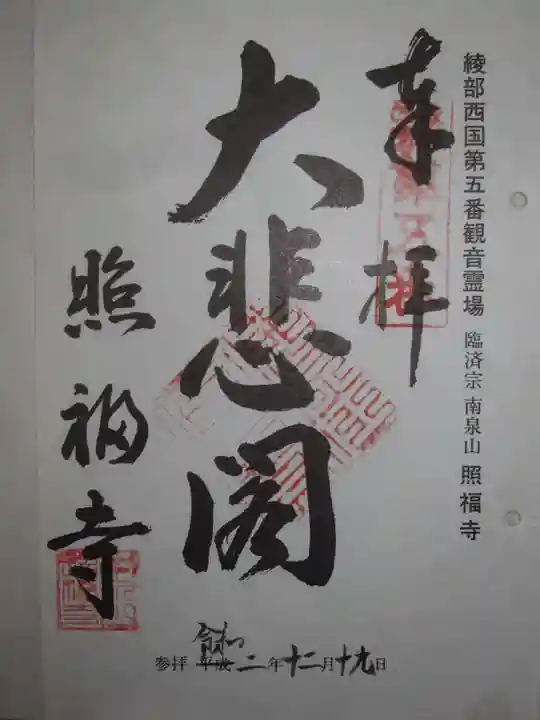 綾部西国第五番観音霊場 臨済宗 南泉山 照福寺
奉拝
大悲閣
照福寺
令和
参拝 平成 二年十二月十九日